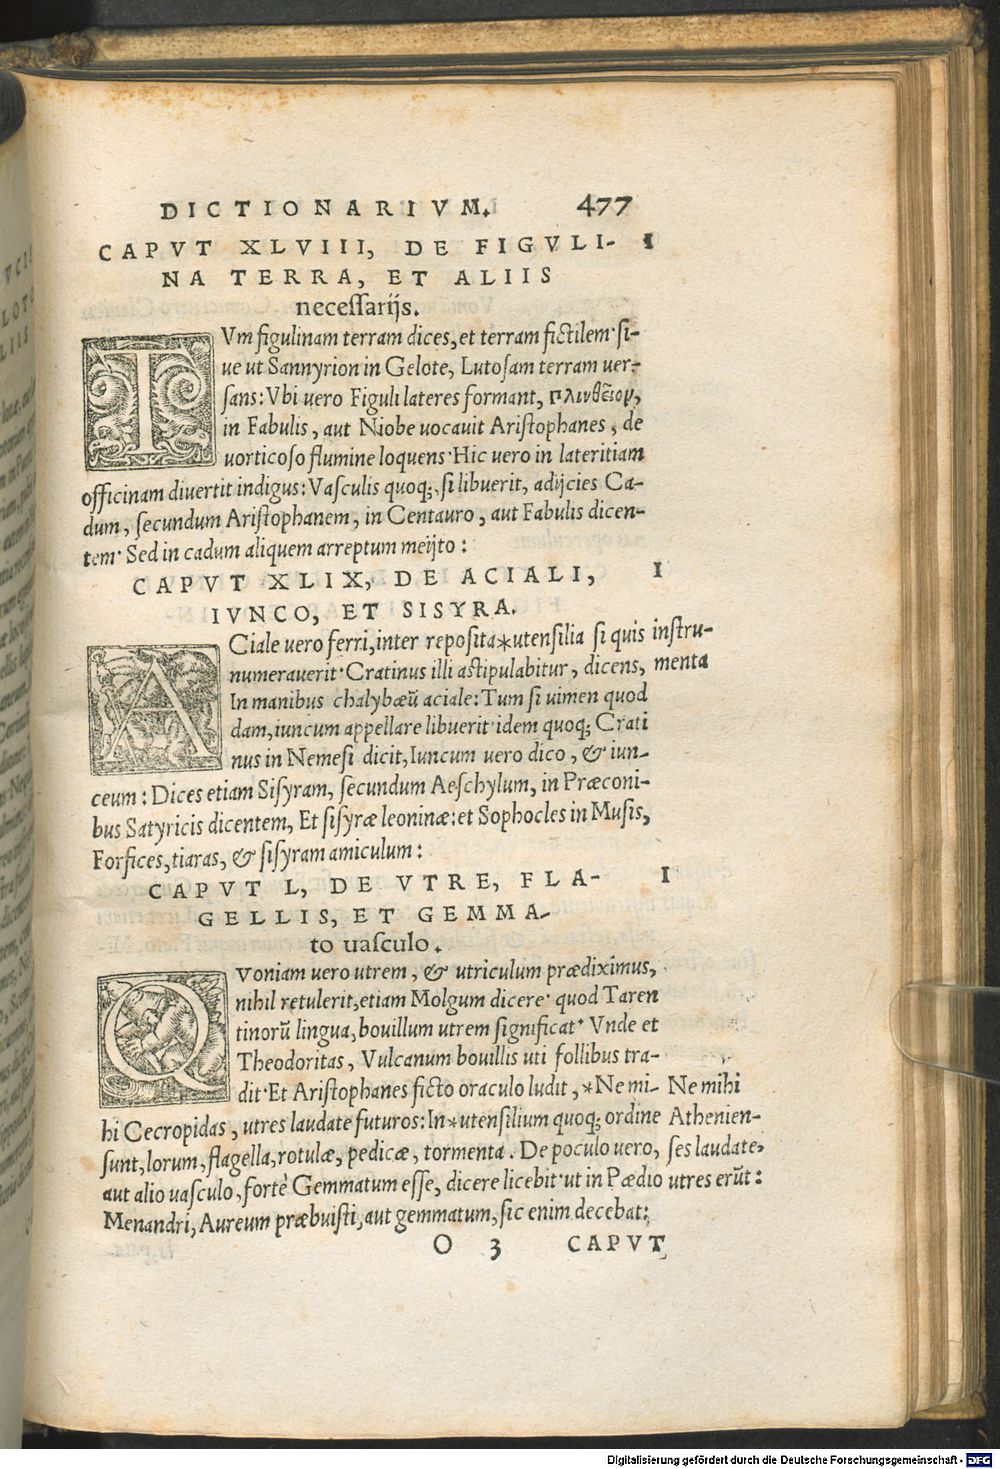 DICTIONARIVM. 477
CAPVT XLVIII, DE FIGVLI- I
NA TERRA, ET ALIIS
necessarijs.
TVm figulinam terram dices, et terram fictilem· si-
ue ut Sannyrion in Gelote, Lutosam terram uer-
sans: Vbi uero Figuli lateres formant, πλινθεῖον,
in Fabulis, aut Niobe uocauit Aristophanes, de
uorticoso flumine loquens· Hic uero in lateritiam
officinam diuertit indigus: Vasculis quoq;, si libuerit, adijcies Ca-
dum, secundum Aristophanem, in Centauro, aut Fabulis dicen-
tem· Sed in cadum aliquem arreptum meijto:
CAPVT XLIX, DE ACIALI, I
IVNCO, ET SISYRA.
ACiale uero ferri, inter reposita*utensilia si quis instru-
numerauerit· Cratinus illi astipulabitur, dicens, menta
In manibus chalybæũ aciale: Tum si uimen quod
dam, iuncum appellare libuerit· idem quoq; Crati
nus in Nemesi dicit, Iuncum uero dico, & iun-
ceum: Dices etiam Sisyram, secundum Aeschylum, in Præconi-
bus Satyricis dicentem, Et sisyræ leoninæ: et Sophocles in Musis,
Forfices, tiaras, & sisyram amiculum:
CAPVT L, DE VTRE, FLA- I
GELLIS, ET GEMMA-
to uasculo.
QVoniam uero utrem, & utriculum prædiximus,
nihil retulerit, etiam Molgum dicere· quod Taren
tinorũ lingua, bouillum utrem significat· Vnde et
Theodoritas, Vulcanum bouillis uti follibus tra-
dit· Et Aristophanes ficto oraculo ludit, *Ne mi- Ne mihi
hi Cecropidas, utres laudate futuros: In*utensilium quoq; ordine Athenien-
sunt, lorum, flagella, rotulæ, pedicæ, tormenta. De poculo uero, ses laudate,
aut alio uasculo, fortè Gemmatum esse, dicere licebit· ut in Pædio utres erũt:
Menandri, Aureum præbuisti, aut gemmatum, sic enim decebat:
O 3 CAPVT
Digitalisierung gefördert durch die Deutsche Forschungsgemeinschaft - DFG